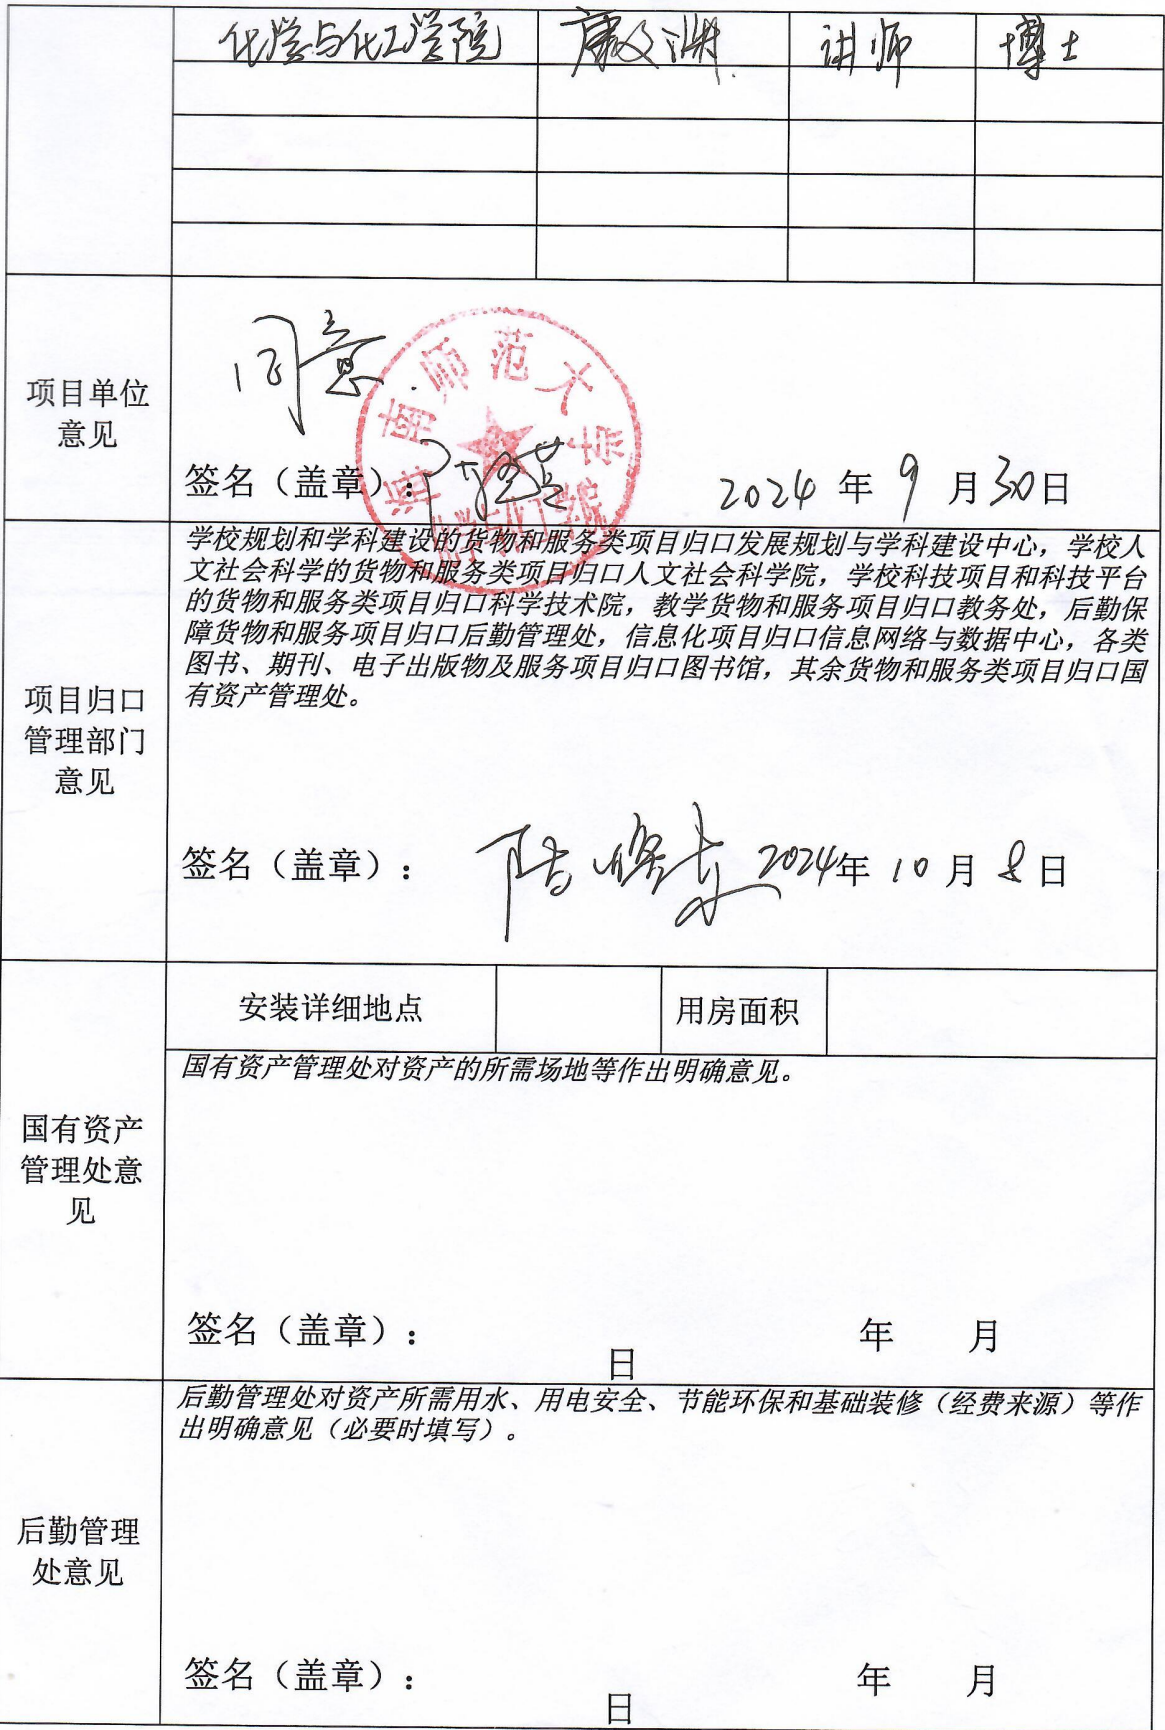 化学与化工学院 康文渊 讲师 博士
同意
项目单位
意见
海南师范大学
化学与化工学院
签名（盖章）： 2024 年 9 月 30 日
学校规划和学科建设的货物和服务类项目归口发展规划与学科建设中心，学校人
文社会科学的货物和服务类项目归口人文社会科学院，学校科技项目和科技平台
的货物和服务类项目归口科学技术院，教学货物和服务项目归口教务处，后勤保
障货物和服务项目归口后勤管理处，信息化项目归口信息网络与数据中心，各类
图书、期刊、电子出版物及服务项目归口图书馆，其余货物和服务类项目归口国
有资产管理处。
项目归口
管理部门
意见
签名（盖章）： 2024年 10 月 8 日
安装详细地点 用房面积
国有资产管理处对资产的所需场地等作出明确意见。
国有资产
管理处意
见
签名（盖章）： 年 月
日
后勤管理处对资产所需用水、用电安全、节能环保和基础装修（经费来源）等作
出明确意见（必要时填写）。
后勤管理
处意见
签名（盖章）： 年 月
日